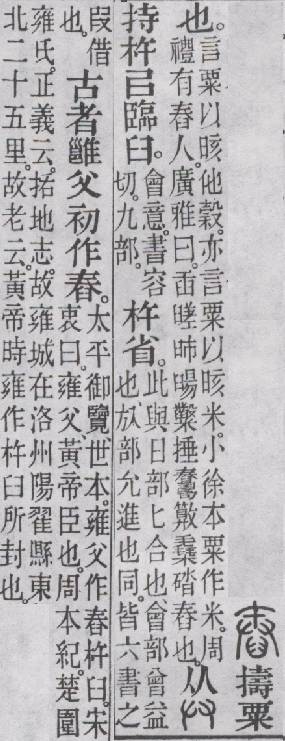 擣粟
也。言粟以晐他穀。亦言粟以晐米。小徐本粟作米。周
禮有舂人。廣雅曰。臿捶舂也。从廾
持杵㠯臨臼。會意。書容
切。九部。杵省。此與日部匕合也。會部曾益
也。㚇部允進也同。皆六書之
叚借
也。古者雝父初作舂。太平御覽。世本。雍父作舂杵臼。宋
衷曰。雍父、黃帝臣也。周本紀。楚圍
雍氏。正義云。括地志。故雍城在洛州陽翟縣東
北二十五里。故老云。黃帝時雍作杵臼所封也。